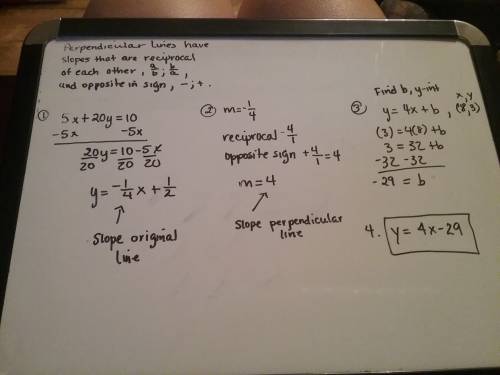 Perpendicular lines have
slopes that are reciprocal
of each other, a/b ; b/a,
and opposite in sign, -; +.
① 5x + 20y = 10
-5x -5x
20y/20 = 10/20 - 5x/20
y = -1/4 x + 1/2
Slope original
line
② m = -1/4
reciprocal -4/1
opposite sign +4/1 = 4
m = 4
Slope perpendicular
line
③ Find b, y-int
x, y
y = 4x + b, (8,3)
(3) = 4(8) + b
3 = 32 + b
-32 -32
-29 = b
4. y = 4x - 29